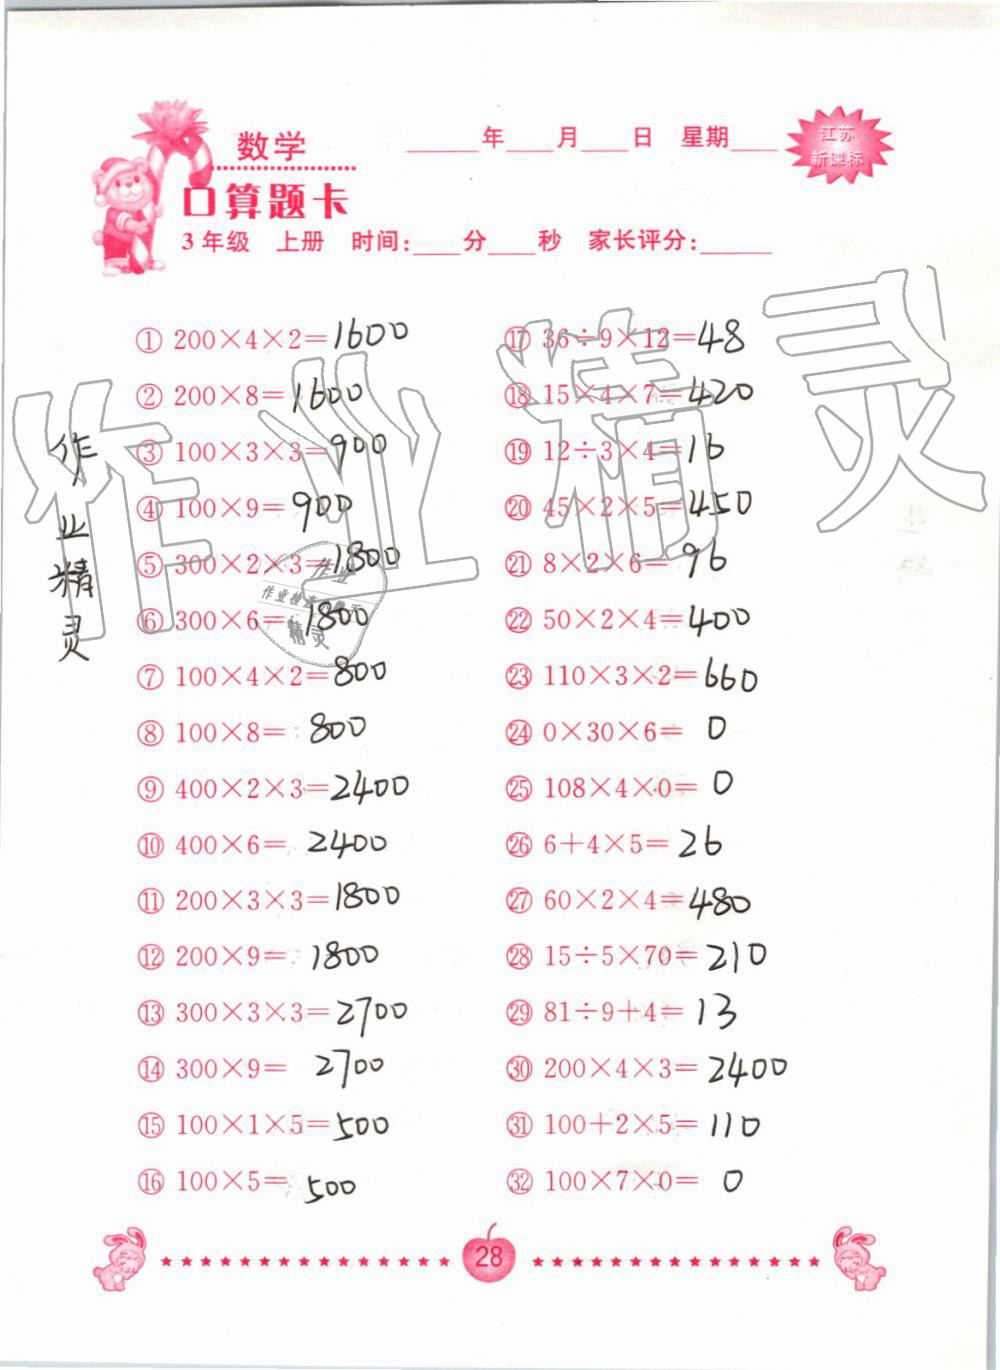 数学
口算题卡
____年____月____日 星期____
江苏
新课标
3年级 上册 时间:____分____秒 家长评分:____
① 200×4×2=1600
② 200×8=1600
③ 100×3×3=900
④ 100×9=900
⑤ 300×2×3=1800
⑥ 300×6=1800
⑦ 100×4×2=800
⑧ 100×8=800
⑨ 400×2×3=2400
⑩ 400×6=2400
⑪ 200×3×3=1800
⑫ 200×9=1800
⑬ 300×3×3=2700
⑭ 300×9=2700
⑮ 100×1×5=500
⑯ 100×5=500
⑰ 36÷9×12=48
⑱ 15×4×7=420
⑲ 12÷3×4=16
⑳ 45×2×5=450
㉑ 8×2×6=96
㉒ 50×2×4=400
㉓ 110×3×2=660
㉔ 0×30×6=0
㉕ 108×4×0=0
㉖ 6+4×5=26
㉗ 60×2×4=480
㉘ 15÷5×70=210
㉙ 81÷9+4=13
㉚ 200×4×3=2400
㉛ 100+2×5=110
㉜ 100×7×0=0
作业精灵
作业精灵
作业
精灵
28